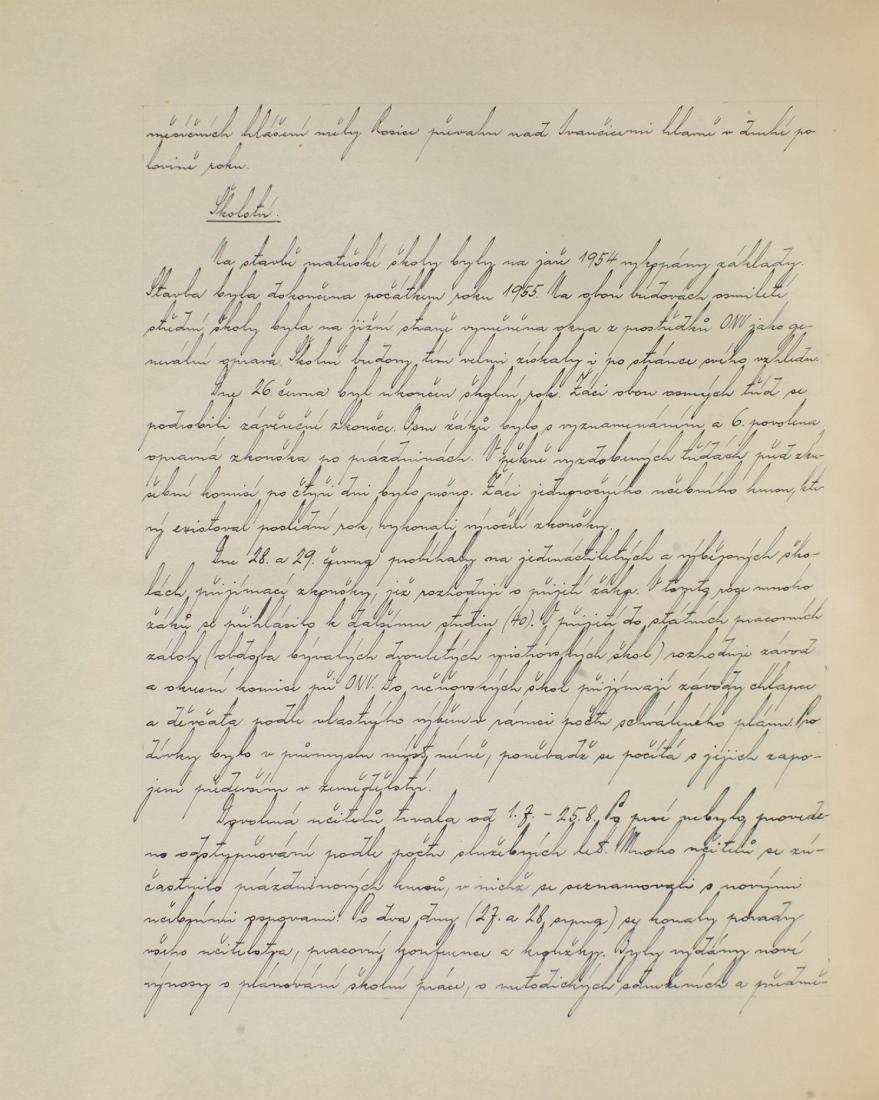 měsíčních hlášení měly Rosice převahu nad Ivančicemi hlavně v druhé po-
lovině roku.
Školství.
Na stavbě mateřské školy byly na jaře 1954 vykopány základy.
Stavba byla dokončena počátkem roku 1955. Na obou budovách osmileté
střední školy byla na jižní straně vyměněna okna z prostředků ONV jako ge-
nerální oprava. Školní budovy tím velmi získaly i po stránce svého vzhledu.
Dne 26. června byl ukončen školní rok. Žáci obou osmých tříd se
podrobili závěrečné zkoušce. Osm žáků bylo s vyznamenáním a 6. povolena
opravná zkouška po prázdninách. V pěkně vyzdobených třídách před zku-
šební komisí po čtyři dni bylo Žáci jednoročního učebního kursu, kte-
rý existoval poslední rok, vykonali výroční zkoušky.
Dne 28. a 29. června probíhaly na jedenáctiletých a výběrových ško-
lách přijímací zkoušky, jež rozhodují o přijetí žáka. V tomto roce mnoho
žáků se přihlásilo k dalšímu studiu (40). O přijetí do státních pracovních
záloh (obdoba bývalých dvouletých mistrovských škol) rozhoduje závod
a okresní komise při ONV. Do učňovských škol přijímají závody chlapce
a děvčata podle vlastního výběru v rámci počtu schváleného plánu. Pro
dívky bylo v průmyslu míst méně, poněvadž se počítá s jejich zapo-
jení především v zemědělství.
Dovolená učitelů trvala od 1.7. - 25.8. Po prvé nebylo provede-
no odstupňování podle počtu služebních let. Mnoho učitelů se zú-
častnilo prázdninových kursů, v nichž se seznamovali s novými
učebními osnovami. Po dva dny (27. a 28. srpna) se konaly porady
všeho učitelstva, pracovní konference a kroužky. Byly vydány nové
výnosy o plánování školní práce, o metodických sdruženích a předmě-